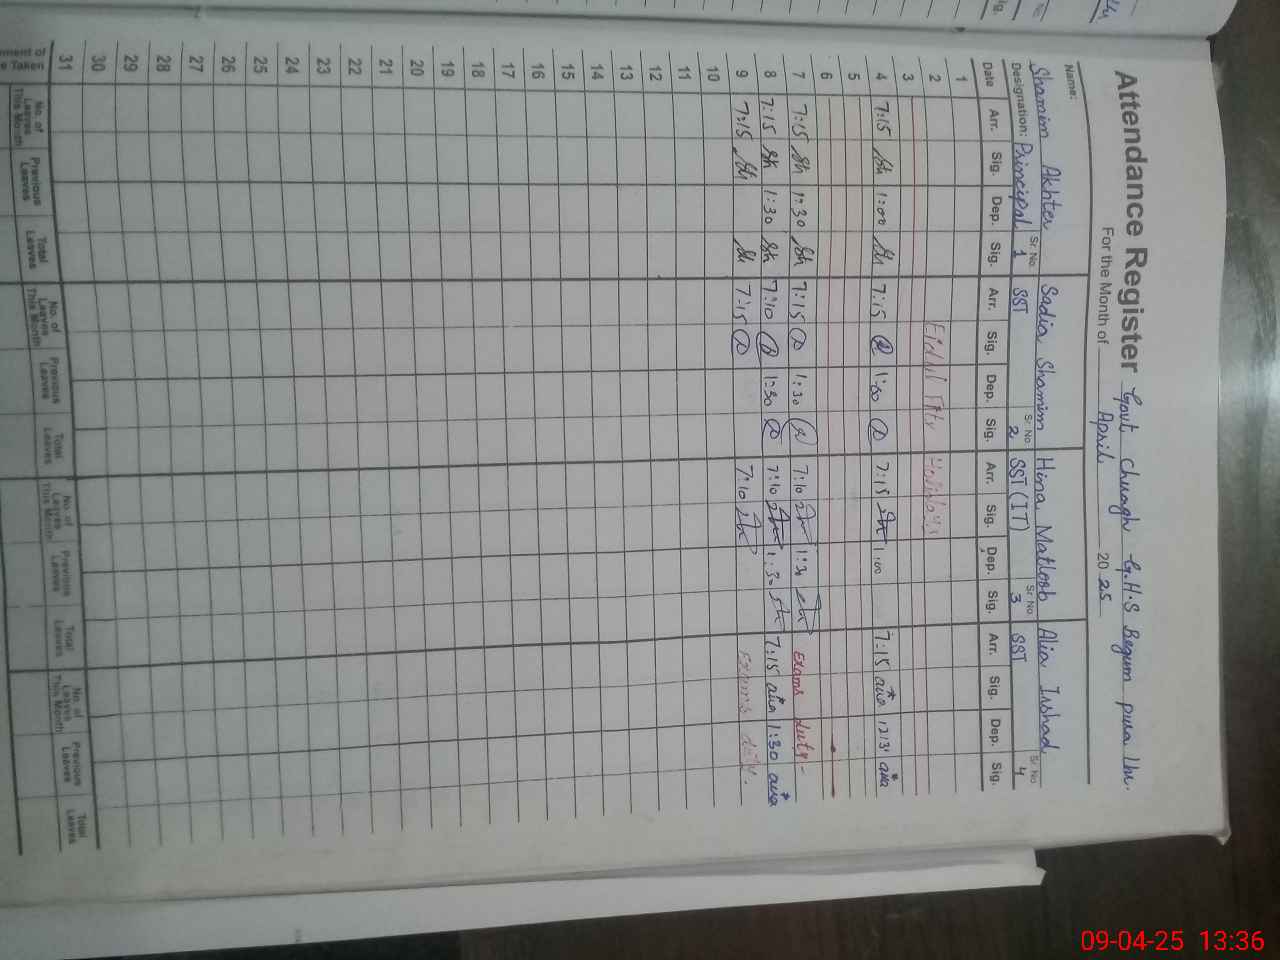 Attendance Register Govt Chuagh G.H.S Begum pura Lhr.
For the Month of April 2025
Name: Shamim Akhter Sadia Shamim Hina Matloob Alia Irshad
Designation: Principal Sr. No. 1 SST Sr. No. 2 SST (IT) Sr. No. 3 SST Sr. No. 4
Date Arr. Sig. Dep. Sig. Arr. Sig. Dep. Sig. Arr. Sig. Dep. Sig. Arr. Sig. Dep. Sig.
1
2 Eidul Fitr Holidays
3
4 7:15 Sh 1:00 Sh 7:15 1:00 7:15 1:00 7:15
5
6
7 7:15 Sh 1:30 Sh 7:15 1:30 7:10 1:30 Exams duty-
8 7:15 Sh 1:30 Sh 7:10 1:30 7:10 1:30 7:15 1:30
9 7:15 Sh Sh 7:15 7:10 Exams duty.
10
11
12
13
14
15
16
17
18
19
20
21
22
23
24
25
26
27
28
29
30
31 No. of Leaves This Month Previous Leaves Total Leaves No. of Leaves This Month Previous Leaves Total Leaves No. of Leaves This Month Previous Leaves Total Leaves No. of Leaves This Month Previous Leaves Total Leaves
09-04-25 13:36